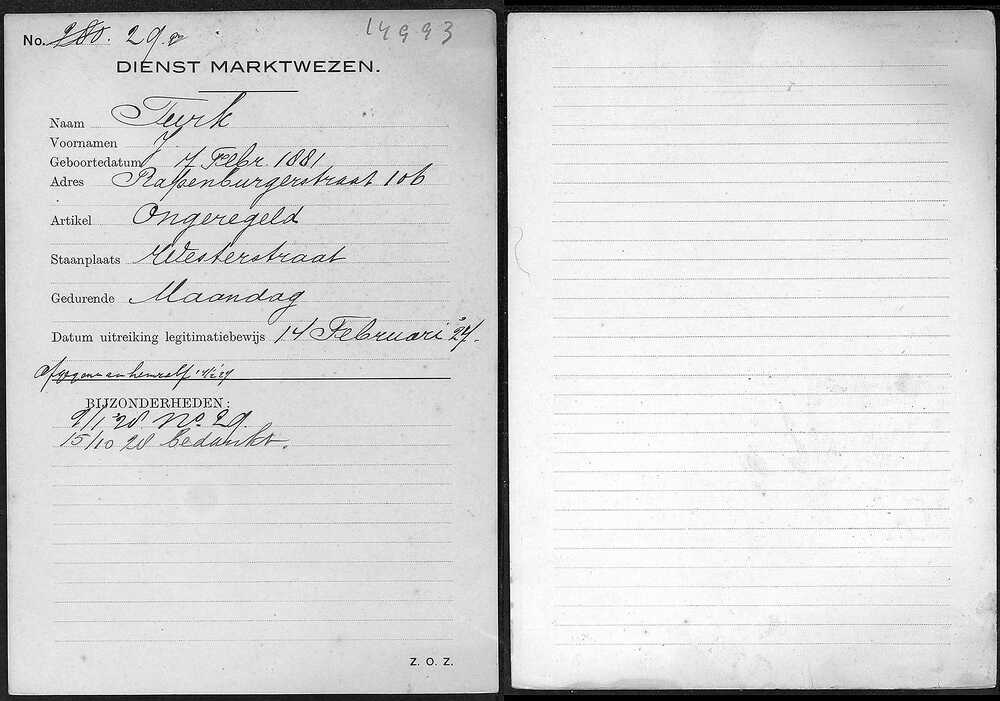 No. 280. 29.
14993
DIENST MARKTWEZEN.
Naam Turk
Voornamen J
Geboortedatum 7 Febr. 1881
Adres Rapenburgerstraat 106
Artikel Ongeregeld
Staanplaats Westerstraat
Gedurende Maandag
Datum uitreiking legitimatiebewijs 14 Februari '27.
BIJZONDERHEDEN:
9/1 '28. No. 29.
15/10 28 bedankt.
Z. O. Z.